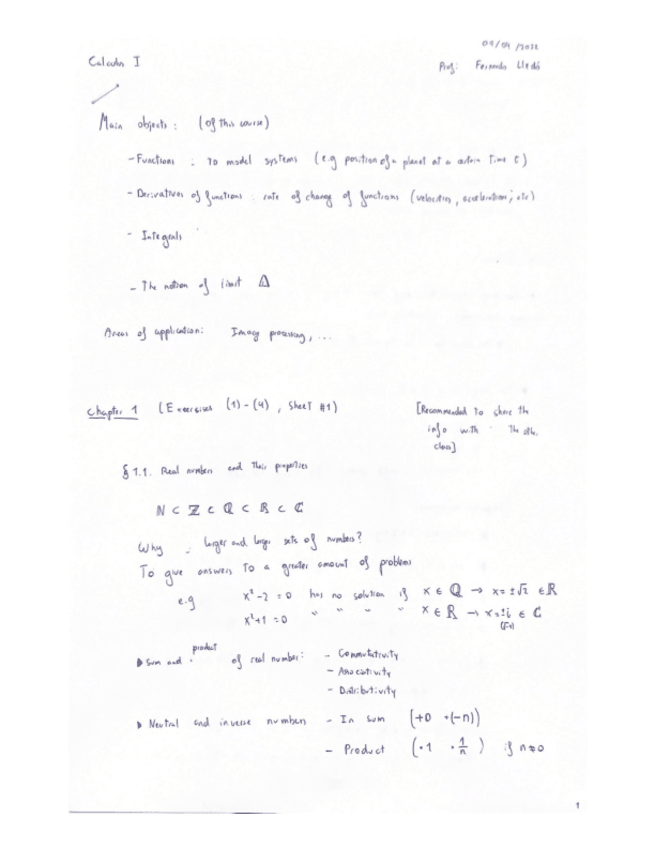 Calculu I
Prof: Fernando Lledó
Main objects: (of this course)
- Functions : to model systems (e.g position of a planet at a certain time t)
- Derivatives of functions : rate of change of functions (velocities, acceleration, etc)
- Integrals
- The notion of limit ⚠
Areas of application: Image processing, ...
Chapter 1 (Exercises (1)-(4), Sheet #1)
[Recommended to share the
info with the oth.
class]
§ 1.1. Real numbers and their properties
ℕ ⊂ ℤ ⊂ ℚ ⊂ ℝ ⊂ ℂ
Why larger and larger sets of numbers?
To give answers to a greater amount of problems
e.g x²-2=0 has no solution if x ∈ ℚ → x=±√2 ∈ ℝ
x²+1=0 " " " " x ∈ ℝ → x=±i ∈ ℂ
▶ Sum and product of real number: - Commutativity
- Associativity
- Distributivity
▶ Neutral and inverse numbers - In sum (+0 +(-n))
- Product (·1 ·1/n) if n≠0
1